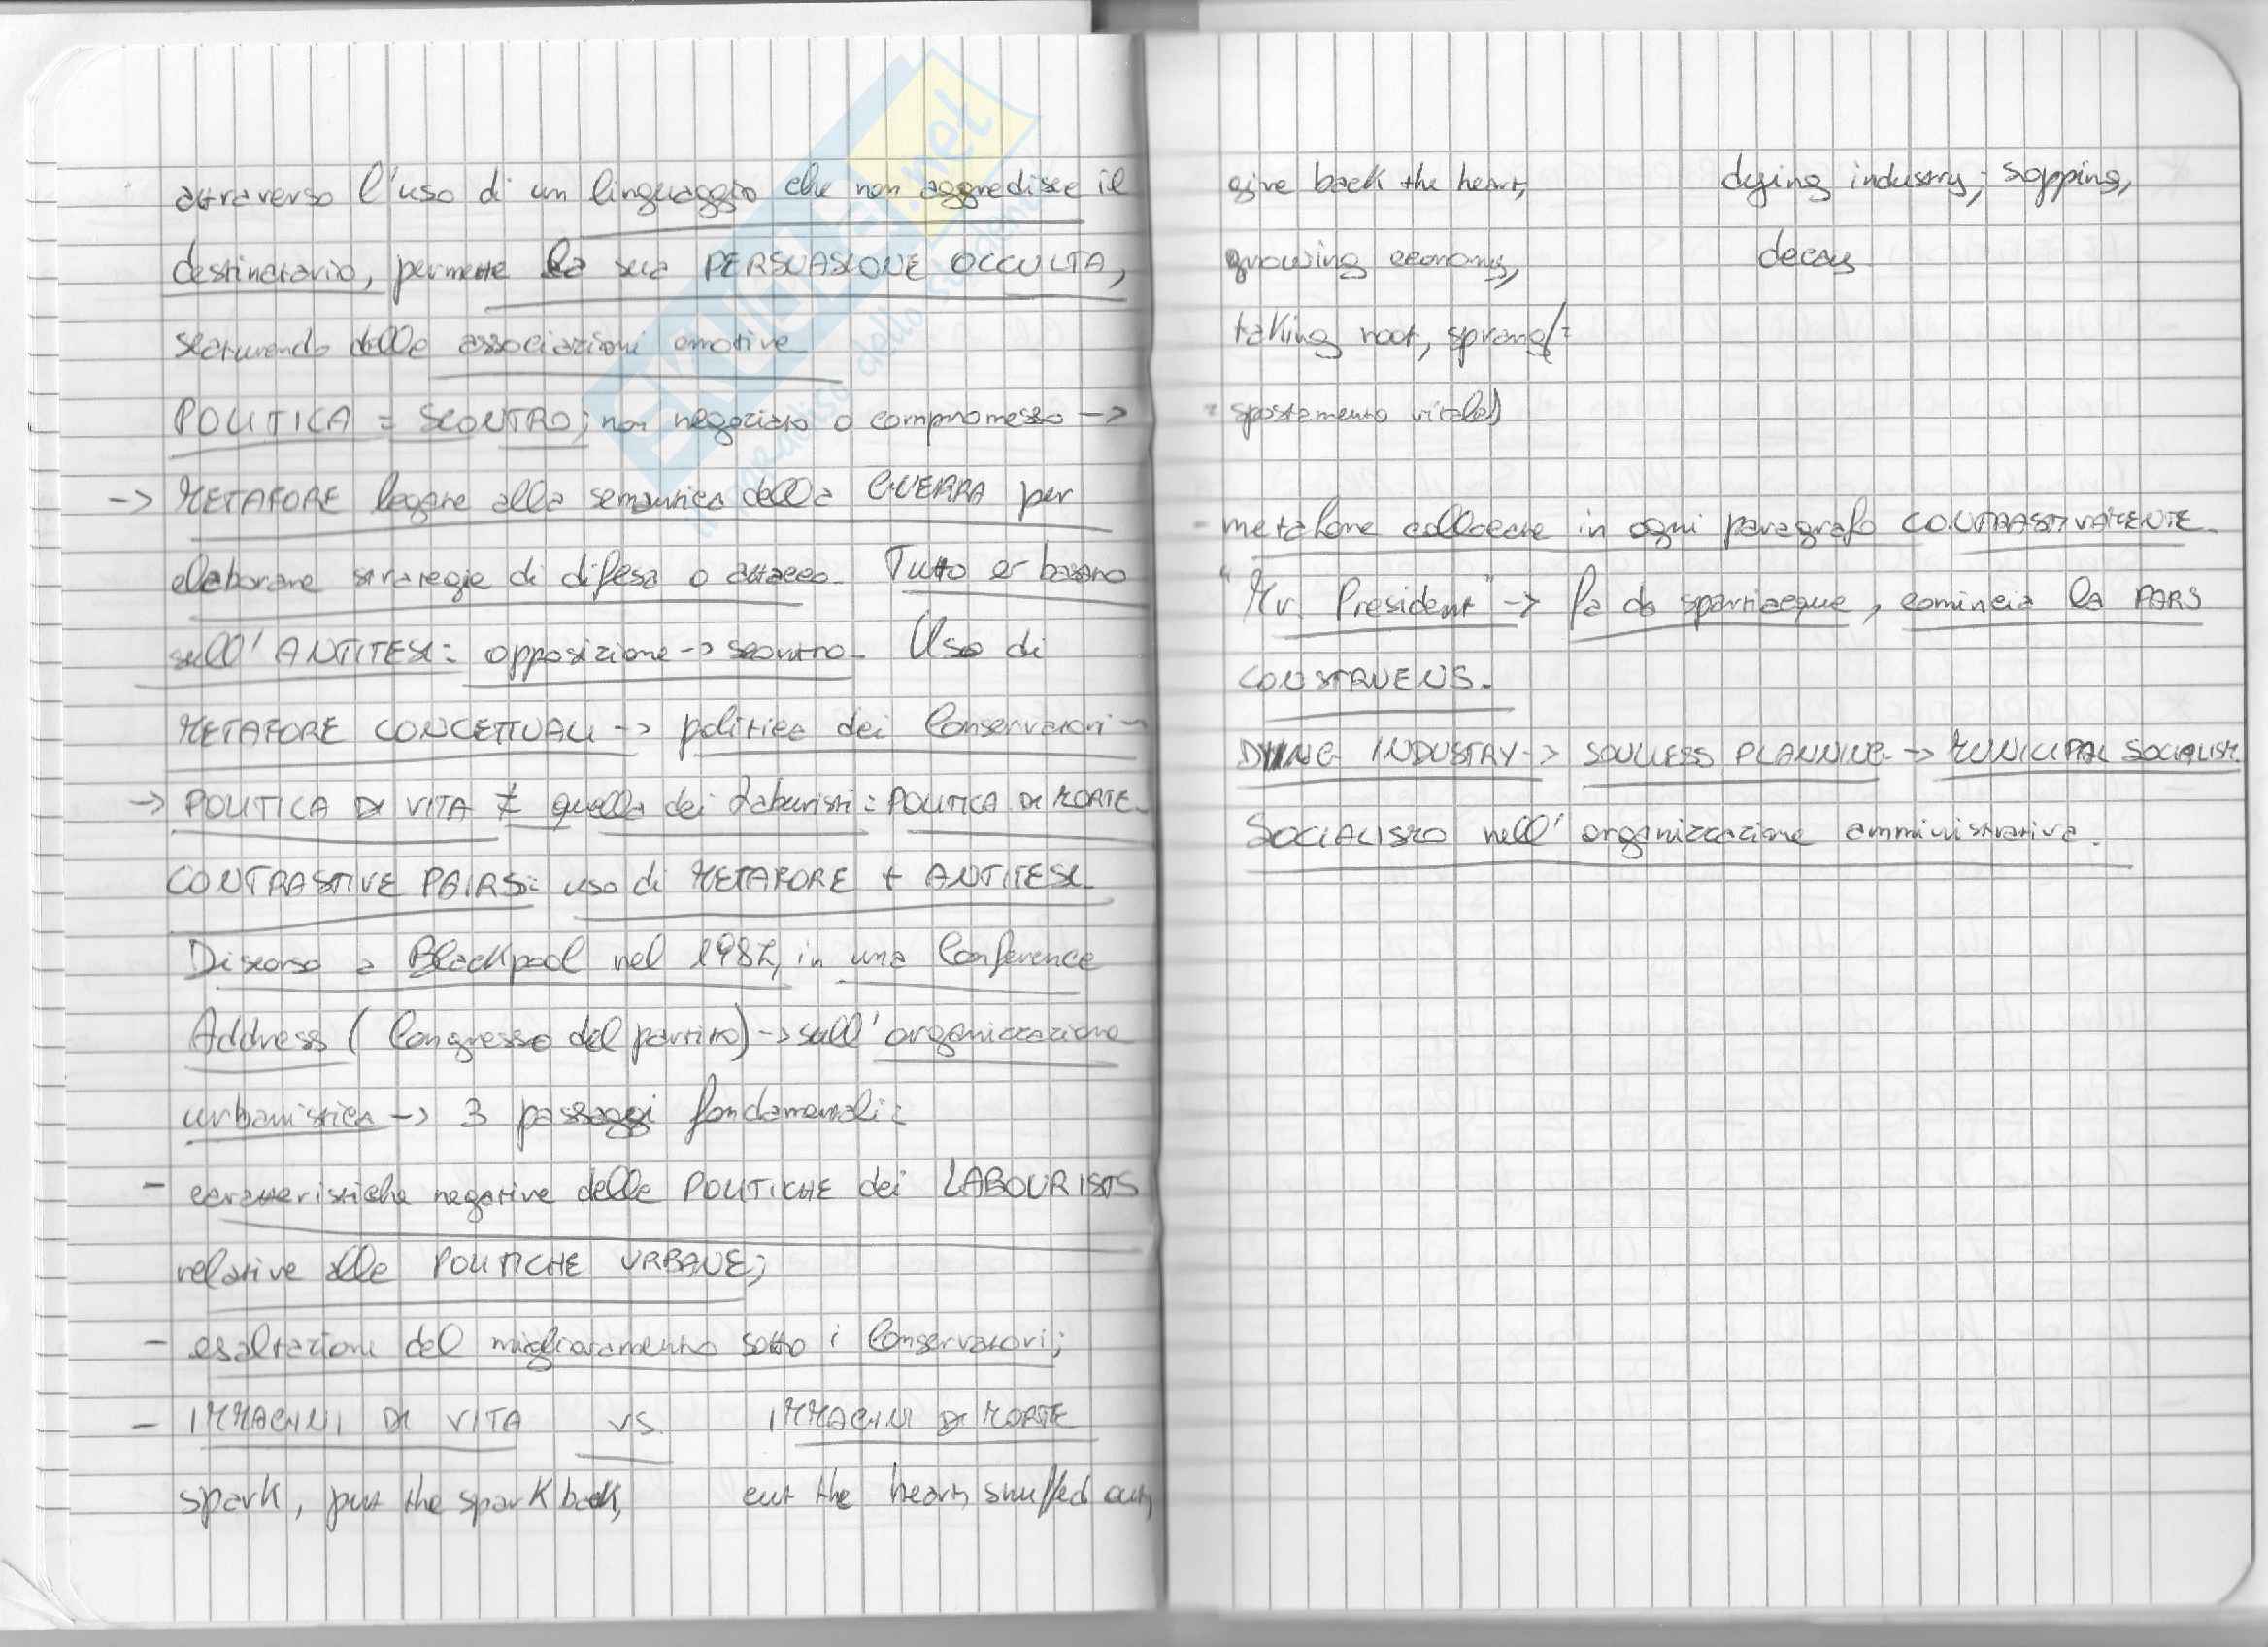 attraverso l'uso di un linguaggio che non aggredisce il
destinatario, permette la sua PERSUASIONE OCCULTA,
scaturendo delle associazioni emotive
POLITICA = SCONTRO; non negoziato o compromesso ->
-> METAFORE legate alla semantica della GUERRA per
elaborare strategie di difesa o attacco. Tutto è basato
sull'ANTITESI: opposizione -> scontro. Uso di
METAFORE CONCETTUALI -> politica dei Conservatori -
-> POLITICA DI VITA ≠ quella dei Laburisti: POLITICA DI MORTE.
CONTRASTIVE PAIRS: uso di METAFORE + ANTITESI.
Discorso a Blackpool nel 1987, in una Conference
Address (Congresso del partito) -> sull'organizzazione
urbanistica -> 3 passaggi fondamentali:
- caratteristiche negative delle POLITICHE dei LABOURISTS
relative alle POLITICHE URBANE;
- esaltazione del miglioramento sotto i Conservatori;
- IMMAGINI DI VITA vs. IMMAGINI DI MORTE
spark, put the spark back, cut the heart, snuffed out,
give back the heart, dying industry, sapping,
growing economy, decay
taking root, sprang/=
= spostamento vitale)
- metafore collocate in ogni paragrafo CONTRASTIVAMENTE.
"Mr. President" -> fa da spartiacque, comincia la PARS
CONSTRUENS.
DYING INDUSTRY -> SOULLESS PLANNING -> MUNICIPAL SOCIALISM.
SOCIALISMO nell'organizzazione amministrativa.